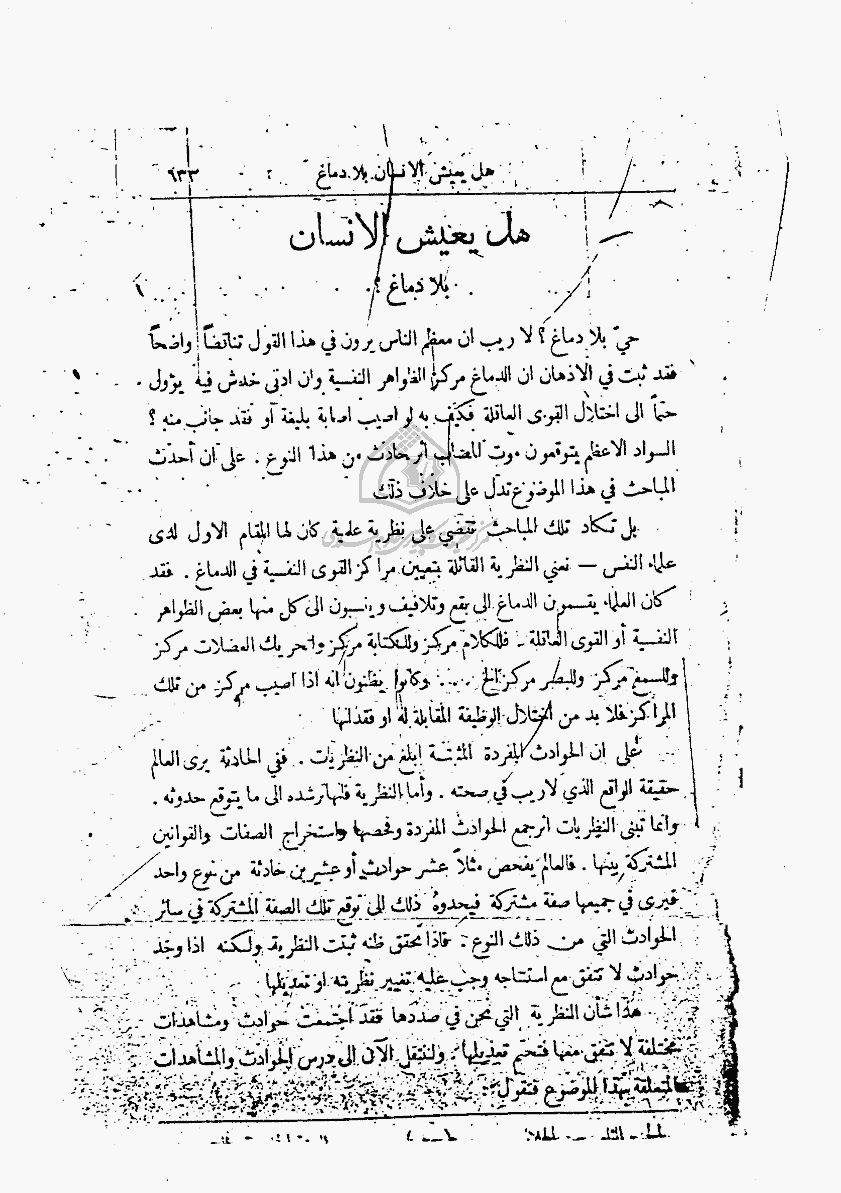 هل يعيش الانسان بلا دماغ ٦٣٣
هل يعيش الانسان
بلا دماغ ؟
حيّ بلا دماغ ؟ لا ريب ان معظم الناس يرون في هذا القول تناقضاً واضحاً
فقد ثبت في الاذهان ان الدماغ مركز الظواهر النفسية وان ادنى خدش فيه يؤول
حتماً الى اختلال القوى العاقلة فكيف به لو اصيب اصابة بليغة أو فقد جانب منه ؟
السواد الاعظم يتوقعون موت المصاب اثر حادث من هذا النوع . على ان أحدث
المباحث في هذا الموضوع تدل على خلاف ذلك
بل تكاد تلك المباحث تقضي على نظرية علمية كان لها المقام الاول لدى
علماء النفس — نعني النظرية القائلة بتعيين مراكز القوى النفسية في الدماغ . فقد
كان العلماء يقسمون الدماغ الى بقع وتلافيف وينسبون الى كل منها بعض الظواهر
النفسية أو القوى العاقلة . فللكلام مركز وللكتابة مركز ولتحريك العضلات مركز
وللسمع مركز وللبصر مركز الخ .... وكانوا يظنون انه اذا اصيب مركز من تلك
المراكز فلا بد من اختلال الوظيفة المقابلة له او فقدانها
على ان الحوادث المفردة المثبتة ابلغ من النظريات . ففي الحادثة يرى العالم
حقيقة الواقع الذي لا ريب في صحته . وأما النظرية فانها ترشده الى ما يتوقع حدوثه .
وانما تبنى النظريات اثر جمع الحوادث المفردة وفحصها واستخراج الصفات والقوانين
المشتركة بينها . فالعالم يفحص مثلاً عشر حوادث أو عشرين حادثة من نوع واحد
فيرى في جميعها صفة مشتركة فيحدوهُ ذلك الى توقع تلك الصفة المشتركة في سائر
الحوادث التي من ذلك النوع . فاذا تحقق ظنه ثبتت النظرية ولكنه اذا وجد
حوادث لا تتفق مع استنتاجه وجب عليه تغيير نظريته او تعديلها
هذا شأن النظرية التي نحن في صددها فقد اجتمعت حوادث ومشاهدات
مختلفة لا تتفق معها فتحتم تعديلها . ولننتقل الآن الى درس الحوادث والمشاهدات
المتعلقة بهذا الموضوع فنقول :